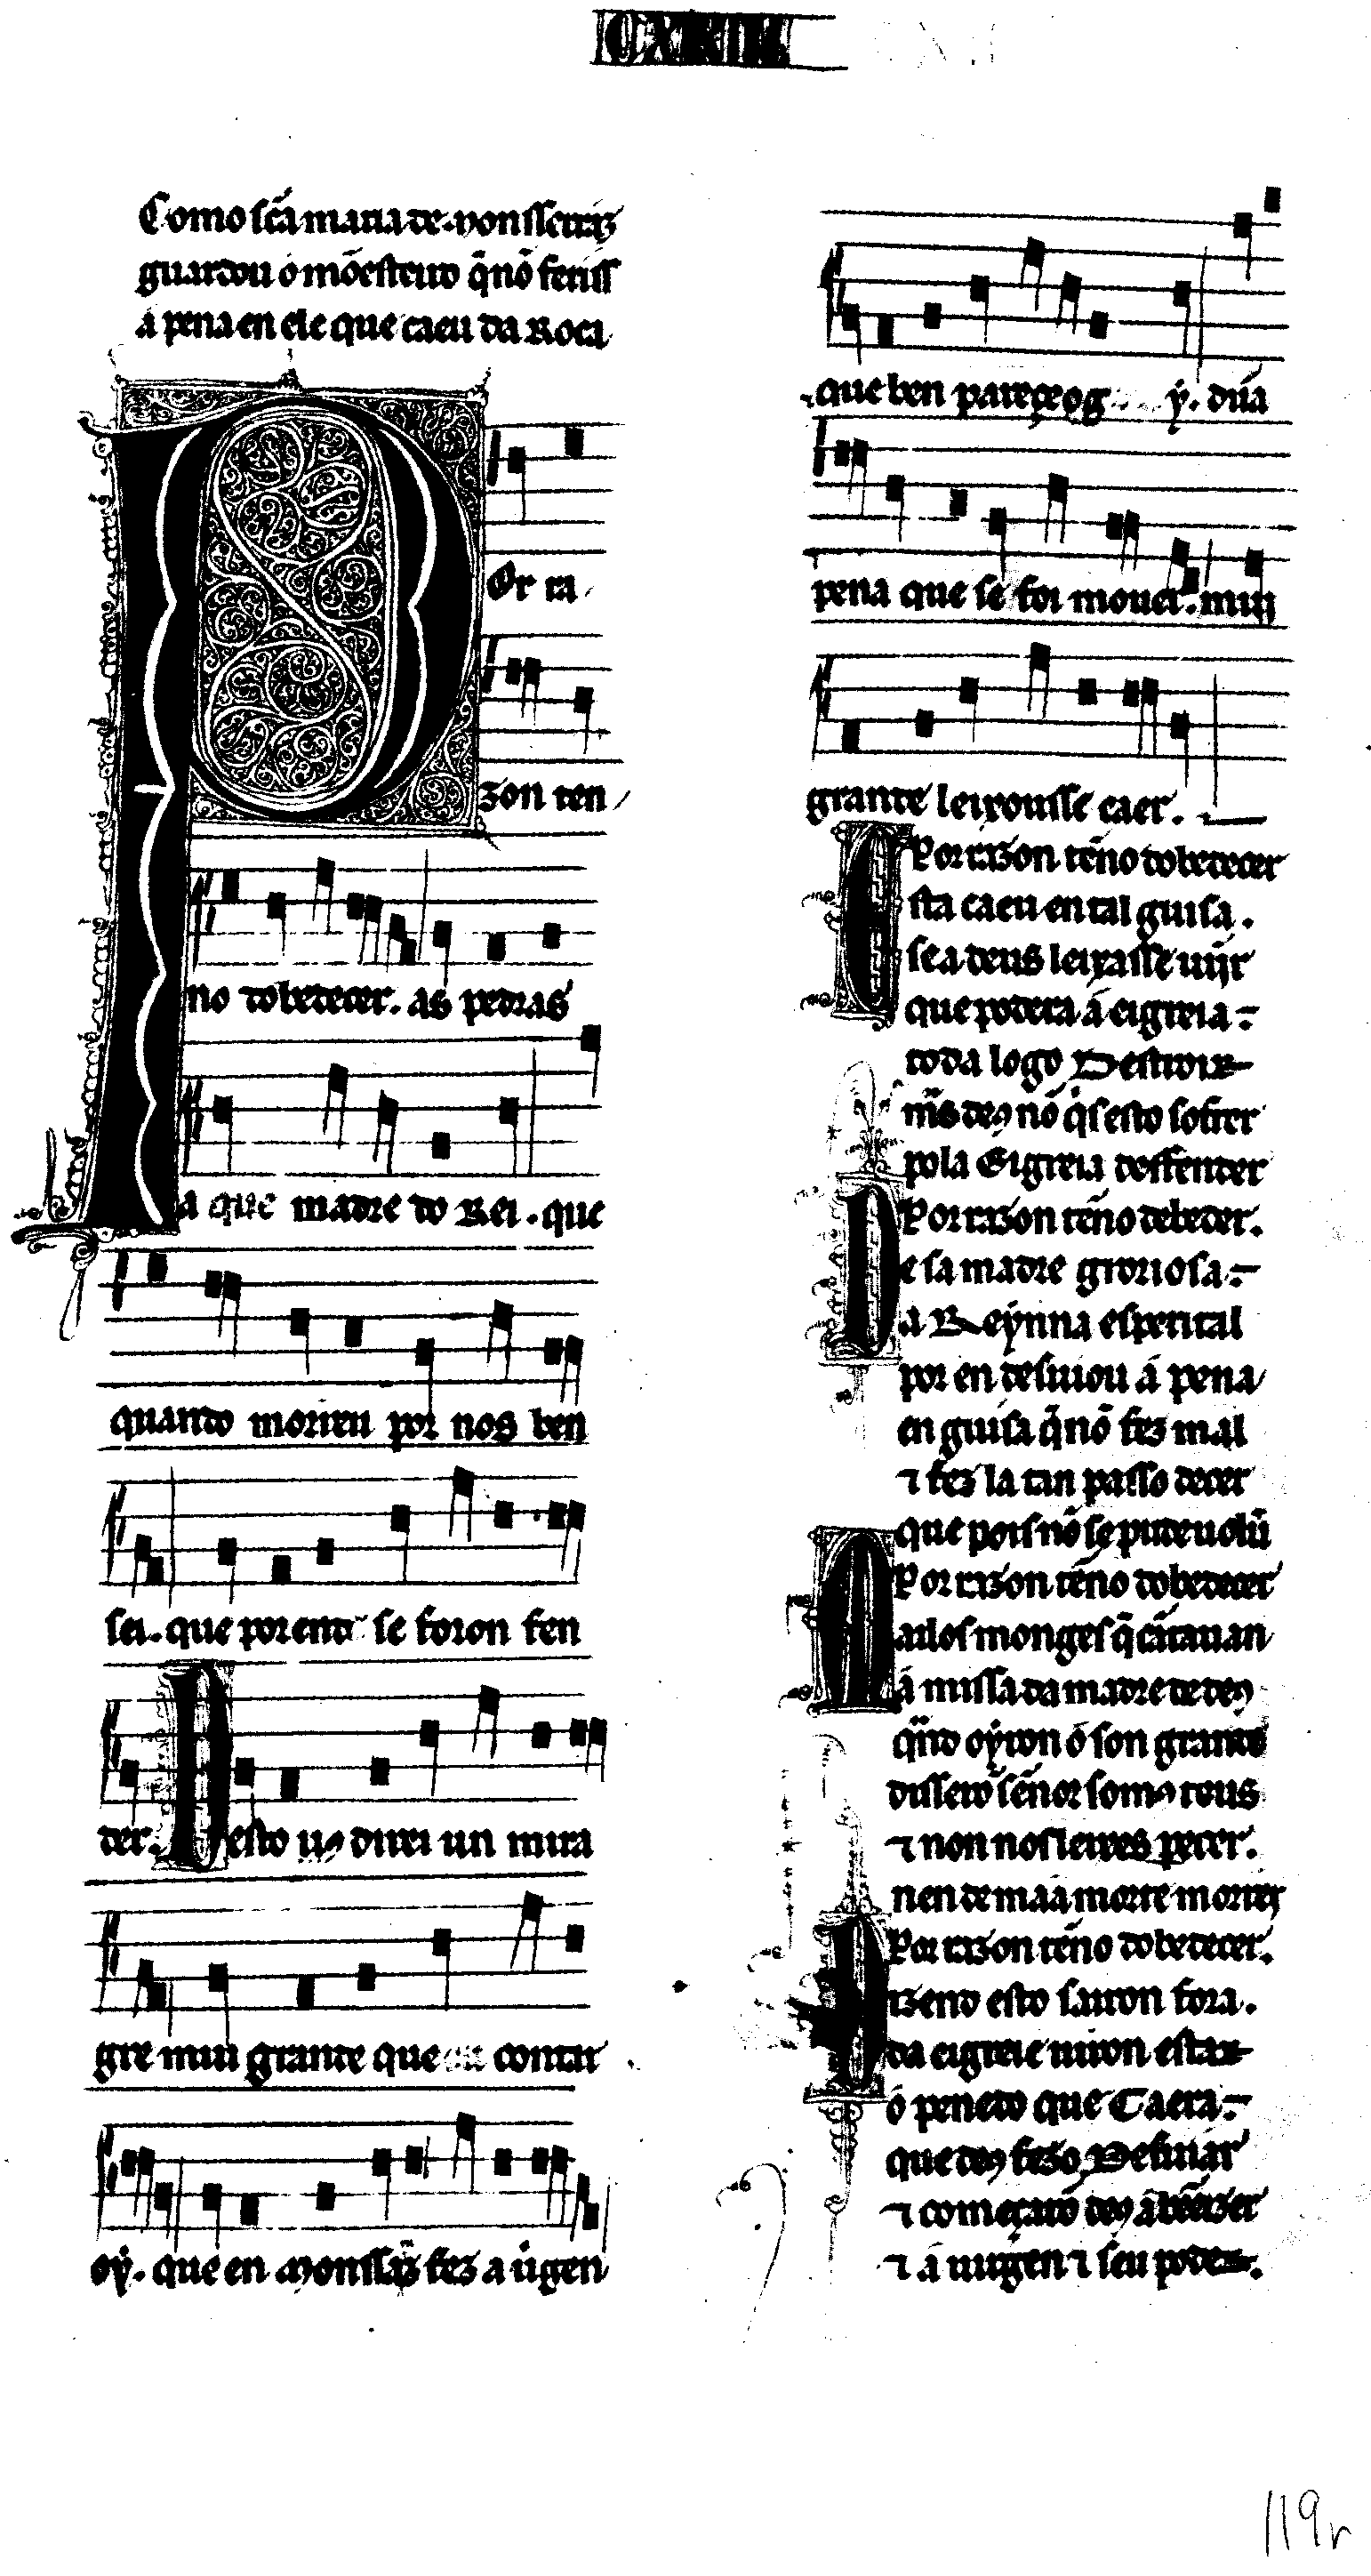 Como sc̃a maria de monssarraz
guardou o mõesteiro q̃ nõ feriss
a pena en ele que caeu da Roca
Por ra
zon ten
no dobedecer. as pedras
a que madre do Rei. que
quando morreu por nos ben
sei. que porend se foron fen
der. Desto uꝯ direi un mira
gre mui grande que contar
oẏ. que en monssarraz fez a uirgen
que ben pareçe og y. dũa
pena que se foi mouer. mui
grande leixousse caer.
Por razon tẽno dobedecer
Esta caeu en tal guisa.
se a deus leixasse uĩjr
que podera á eigreia
toda logo Destroir
mas deꝯ nõ q̇s esto sofrer
pola Eigreia deffender
Por razon tẽno debeder.
De sa madre groriosa
a Reẏnna esperital
por en desuiou á pena
en guisa q̃ nõ fez mal
⁊ fez la tan passo decer
que pois nõ se pude uolũ
Por razon tẽno dobedecer
Mailos monges q̃ cãtauan
á missa da madre de deꝯ
q̃ndo oẏron ó son grande
disserõ sẽnor somꝯ teus
⁊ non nos leixes perder.
nen de máá morte morrer
Por razon tẽno dobedecer.
Dizend esto sairon fora.
da eigreie uiron estar
ó penedo que Caera
que deꝯ fezo Desuiar
⁊ começarõ deꝯ a bẽeizer
⁊ á uirgen ⁊ seu poder.
119r